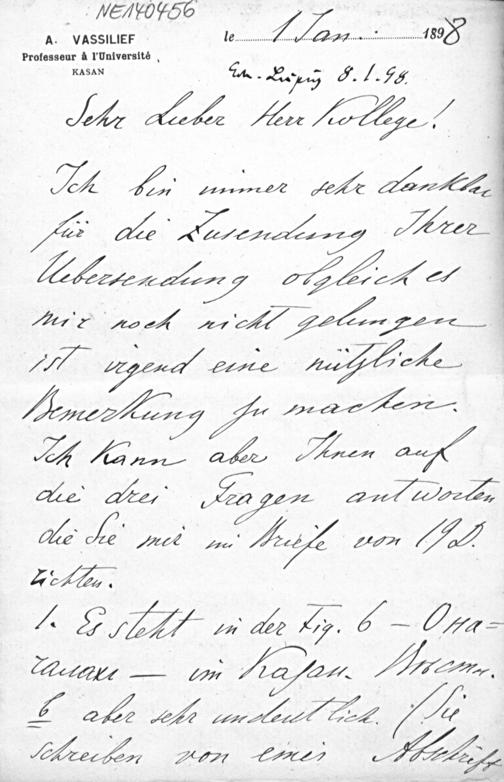 NE140456
A. VASSILIEF
Professeur à l'Université
KASAN
le 1 Jan. 1898
Leipzig 8.1.98.
Sehr Lieber Herr Kollege!
Ich bin immer sehr dankbar
für die Zusendung Ihrer
Uebersendung obgleich es
mir noch nicht gelungen
ist irgend eine nützliche
Bemerkung zu machen.
Ich kann aber Ihnen auf
die drei Fragen antworten
die Sie mir im Briefe von 19 D.
richten.
1. Es steht in der Fig. 6 — О на=
чалахъ — im Kazan. Вѣстн.
6 aber sehr undeutlich. (Sie
schreiben von einer Abschrift